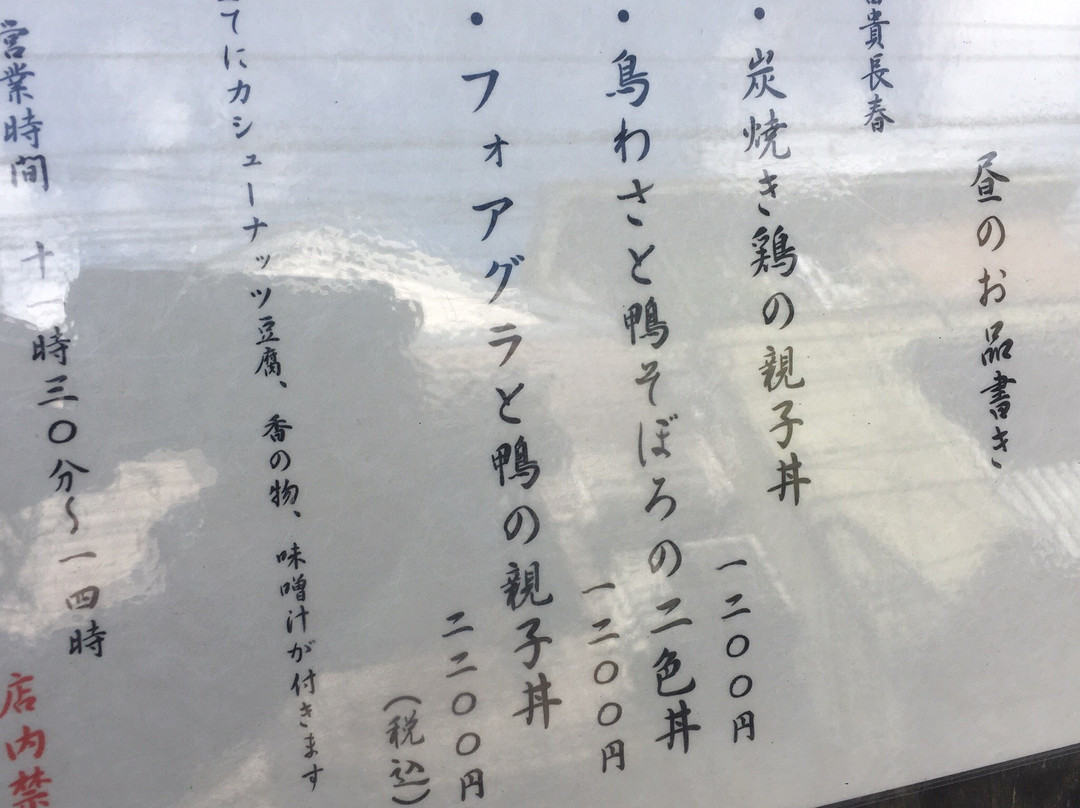 昼のお品書き
貴長春
・炭焼き鶏の親子丼
一二〇〇円
・鳥わさと鴨そぼろの二色丼
一二〇〇円
・フォアグラと鴨の親子丼
二二〇〇円
（税込）
てにカシューナッツ豆腐、香の物、味噌汁が付きます
営業時間 十一時三〇分～一四時
店内禁